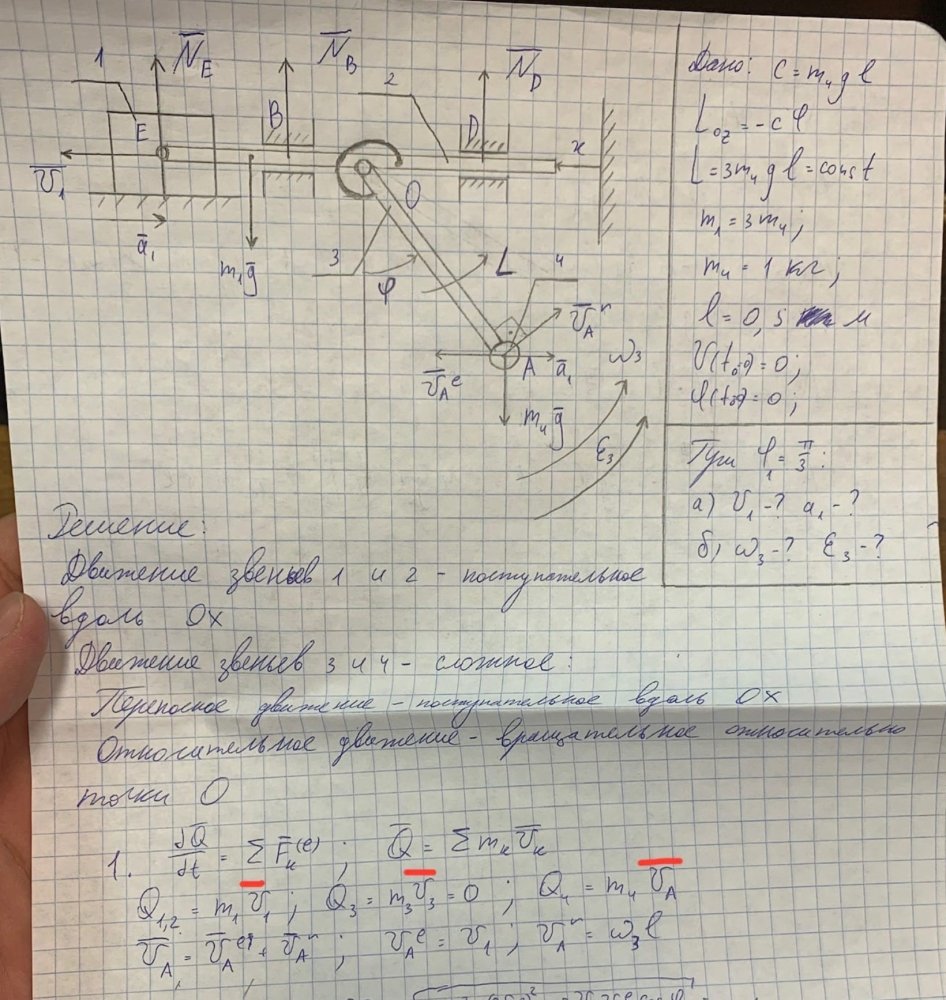 1
N̅_E
N̅_B
2
N̅_D
E
B
D
x
V̅₁
O
a̅₁
m₁g̅
3
φ
L
4
V̅_A^r
A
a̅₁
ω₃
V̅_A^e
m₄g̅
ε₃
Дано: c = m₄gl
L_oz = -cφ
L = 3m₄gl = const
m₁ = 3m₄;
m₄ = 1 кг;
l = 0,5 м
V(t₀) = 0;
φ(t₀) = 0;
При φ₁ = π/3:
а) V₁ - ? a₁ - ?
б) ω₃ - ? ε₃ - ?
Решение:
Движение звеньев 1 и 2 - поступательное
вдоль Ox
Движение звеньев 3 и 4 - сложное:
Переносное движение - поступательное вдоль Ox
Относительное движение - вращательное относительно
точки O
1. dQ̅/dt = Σ F̅_k^(e) ; Q̅ = Σ m_k V̅_k
Q₁,₂ = m₁V̅₁ ; Q₃ = m₃V̅₃ = 0 ; Q₄ = m₄ V̅_A
V̅_A = V̅_A^e + V̅_A^r ; V_A^e = V₁ ; V_A^r = ω₃l